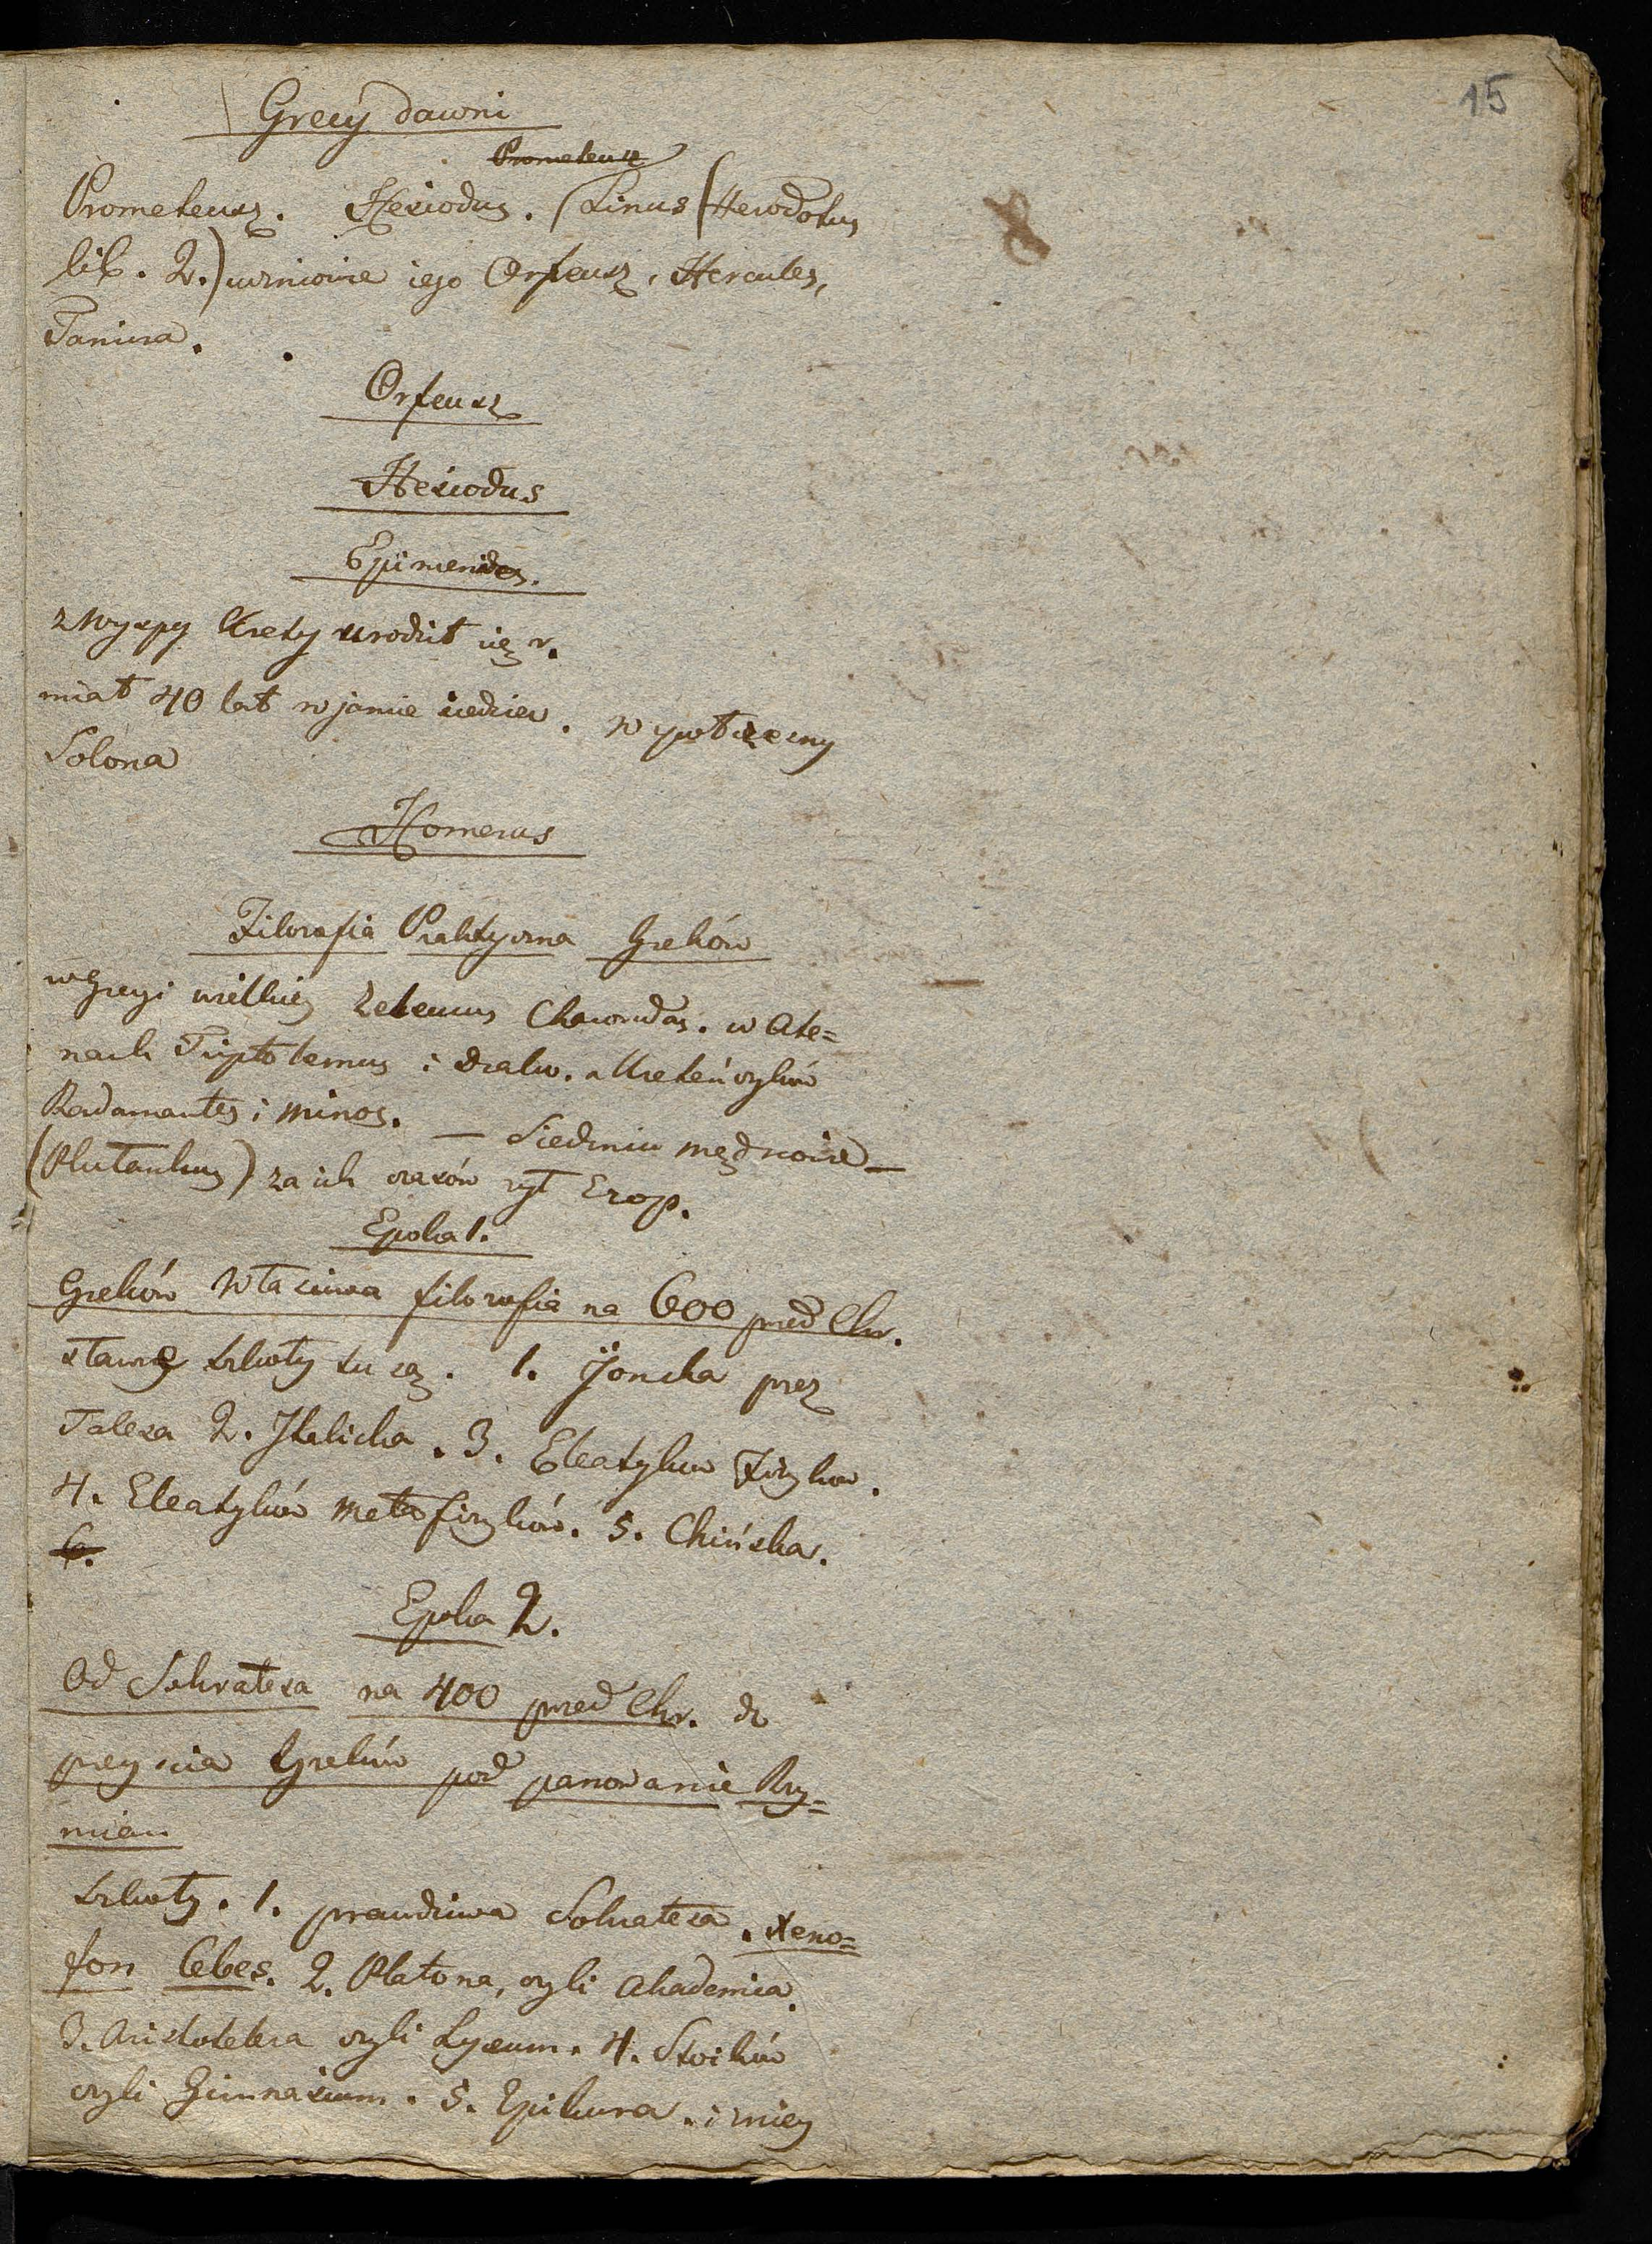 15
Grecy dawni
Prometeusz
Prometeusz. Hesiodus. (Linus (Herodotus
lib. 2.) uczniowie iego Orfeusz, Hercules,
Tamira.
Orfeusz
Hesiodus
Epimenides.
z Wyspy Krety urodził się r.
miał 40 lat w jamie siedzieć. współczesny
Solona
Homerus
Filozofia Praktyczna Greków
w Grecyi wielkiey Zeleucus Charondas. w Ate=
nach Triptolemus i Drako. u Kreteńczyków
Radamantes i Minos. — Siedmiu mędrcowie —
(Plutarkus) za ich czasów żył Ezop.
Epoka 1.
Greków właściwa filozofia na 600 przed Chr.
sławne szkoły tu są. 1. Jońska przez
Talesa 2. Italicka. 3. Eleatyków Fizyków.
4. Eleatyków metafizyków. 5. Chińska.
6.
Epoka 2.
Od Sokratesa na 400 przed Chr. do
przeyścia Greków pod panowanie Rzy=
mian
szkoły. 1. prawdziwa Sokratesa. Xeno=
fon Cebes. 2. Platona, czyli Akademia.
3. Aristotelesa czyli Lyceum. 4. Stoików
czyli Gimnasium. 5. Epikura. i